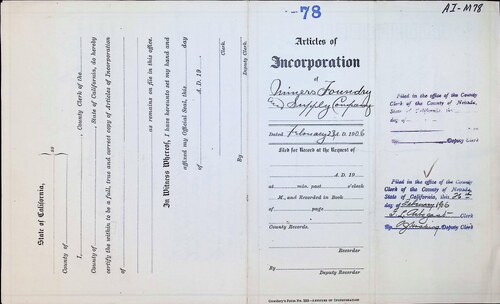 State of California,
County of
ss
I, , County Clerk of the
County of , State of California, do hereby
certify the within to be a full, true and correct copy of Articles of Incorporation
of
as remains on file in this office.
In Witness Whereof, I have hereunto set my hand and
affixed my Official Seal, this day
of A. D. 19
Clerk.
By
Deputy Clerk.
-78
AI-M78
Articles of
Incorporation
of
Miners Foundry
and Supply Company
Dated February A. D. 1906
Filed for Record at the Request of
A. D. 19
at min. past o'clock
M., and Recorded in Book
of page
County Records.
Recorder
By
Deputy Recorder
Filed in the office of the County
Clerk of the County of Nevada,
State of California, this
day of
Clerk
By Deputy Clerk
Filed in the office of the County
Clerk of the County of Nevada,
State of California, this 26th
day of February 1906
Clerk
By Deputy Clerk
ARTICLES OF INCORPORATION